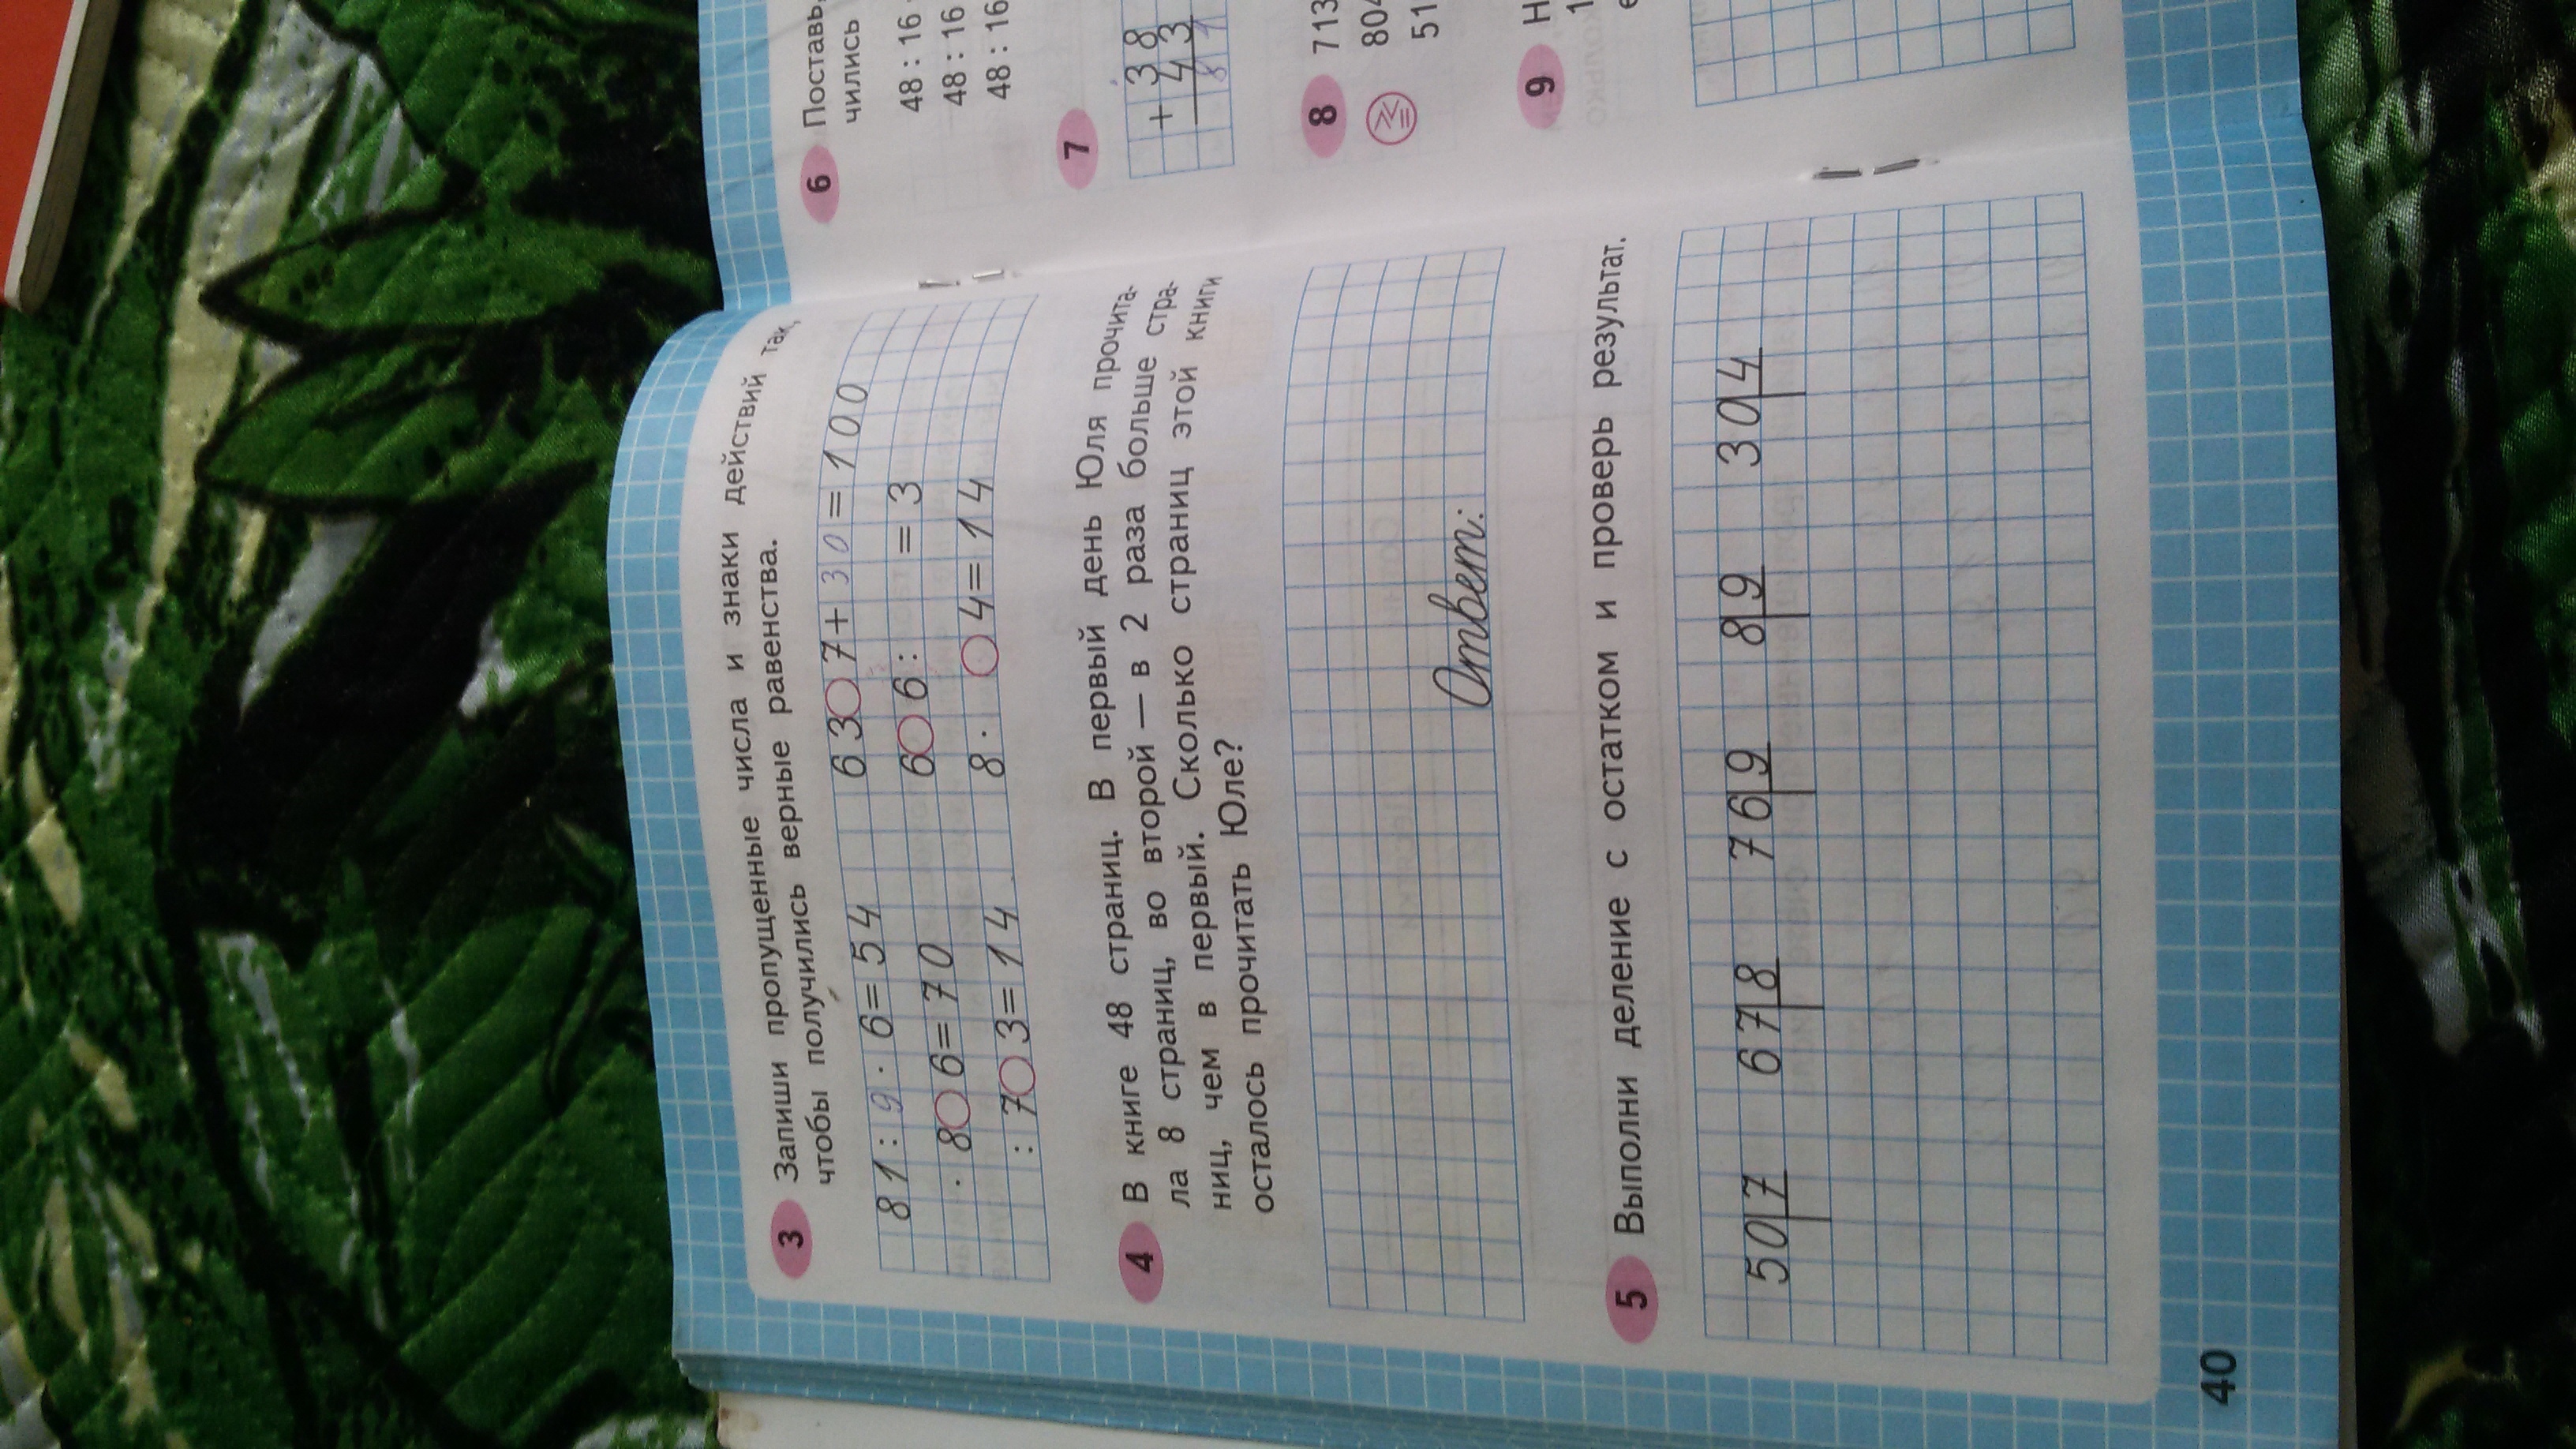 3 Запиши пропущенные числа и знаки действий так,
чтобы получились верные равенства.
81:9·6=54 63○7+30=100
·8○6=70 6○6: =3
:7○3=14 8· ○4=14
4 В книге 48 страниц. В первый день Юля прочита-
ла 8 страниц, во второй — в 2 раза больше стра-
ниц, чем в первый. Сколько страниц этой книги
осталось прочитать Юле?
Ответ:
5 Выполни деление с остатком и проверь результат.
50 7 67 8 76 9 8 9 30 4
40
6 Поставь,
чились
48 : 16
48 : 16
48 : 16
7
+ 38
43
81
8 713
804
51
9 Н
1